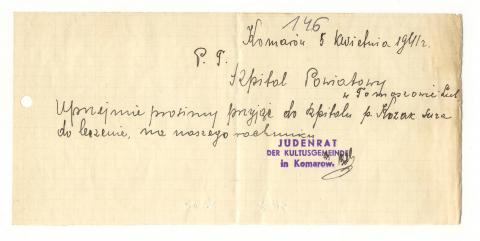 146
Komarów 5 kwietnia 1941 r.
P. T.
Szpital Powiatowy
w Tomaszowie Lub.
Uprzejmie prosimy przyjąć do szpitalu p. Kozak Sura
do leczenie, na naszego rachunku
JUDENRAT
DER KULTUSGEMEINDE
in Komarow.